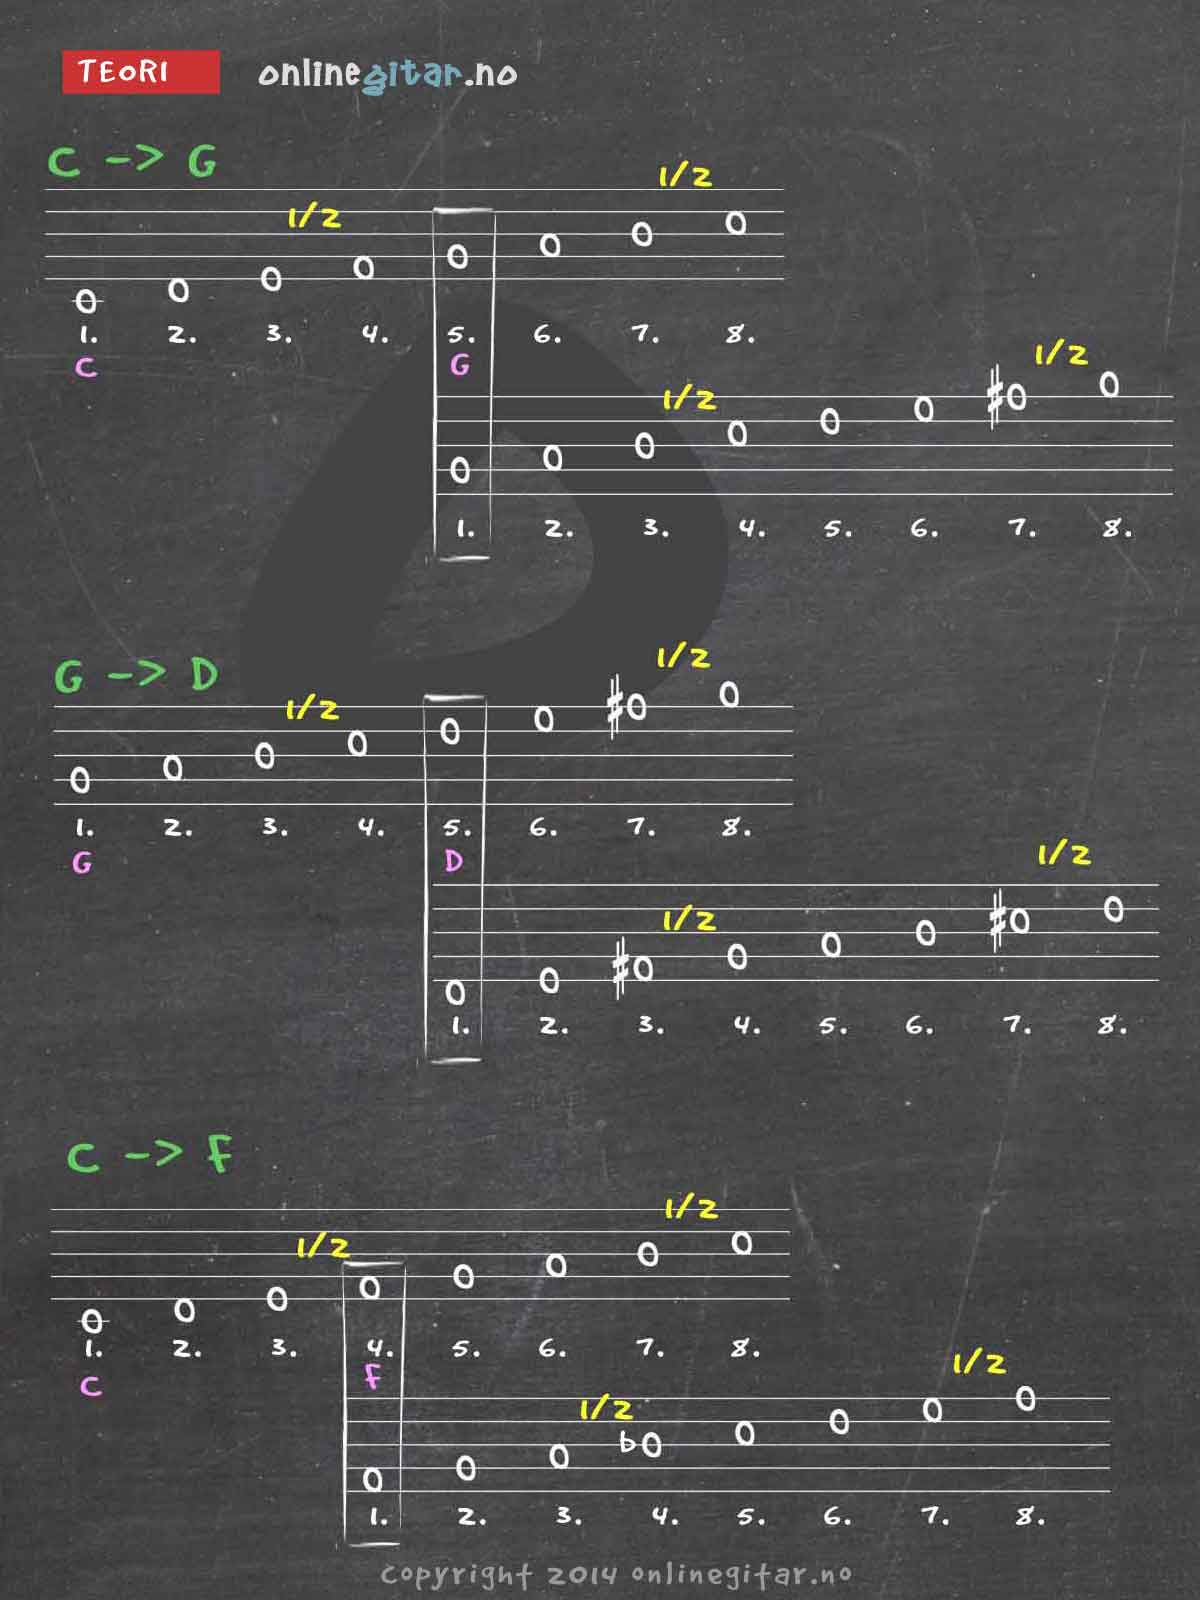 TEORI onlinegitar.no
C -> G
1/2 1/2
1. 2. 3. 4. 5. 6. 7. 8.
C G
1/2 1/2
1. 2. 3. 4. 5. 6. 7. 8.
G -> D
1/2 1/2
1. 2. 3. 4. 5. 6. 7. 8.
G D
1/2 1/2
1. 2. 3. 4. 5. 6. 7. 8.
C -> F
1/2 1/2
1. 2. 3. 4. 5. 6. 7. 8.
C F
1/2 1/2
1. 2. 3. 4. 5. 6. 7. 8.
copyright 2014 onlinegitar.no